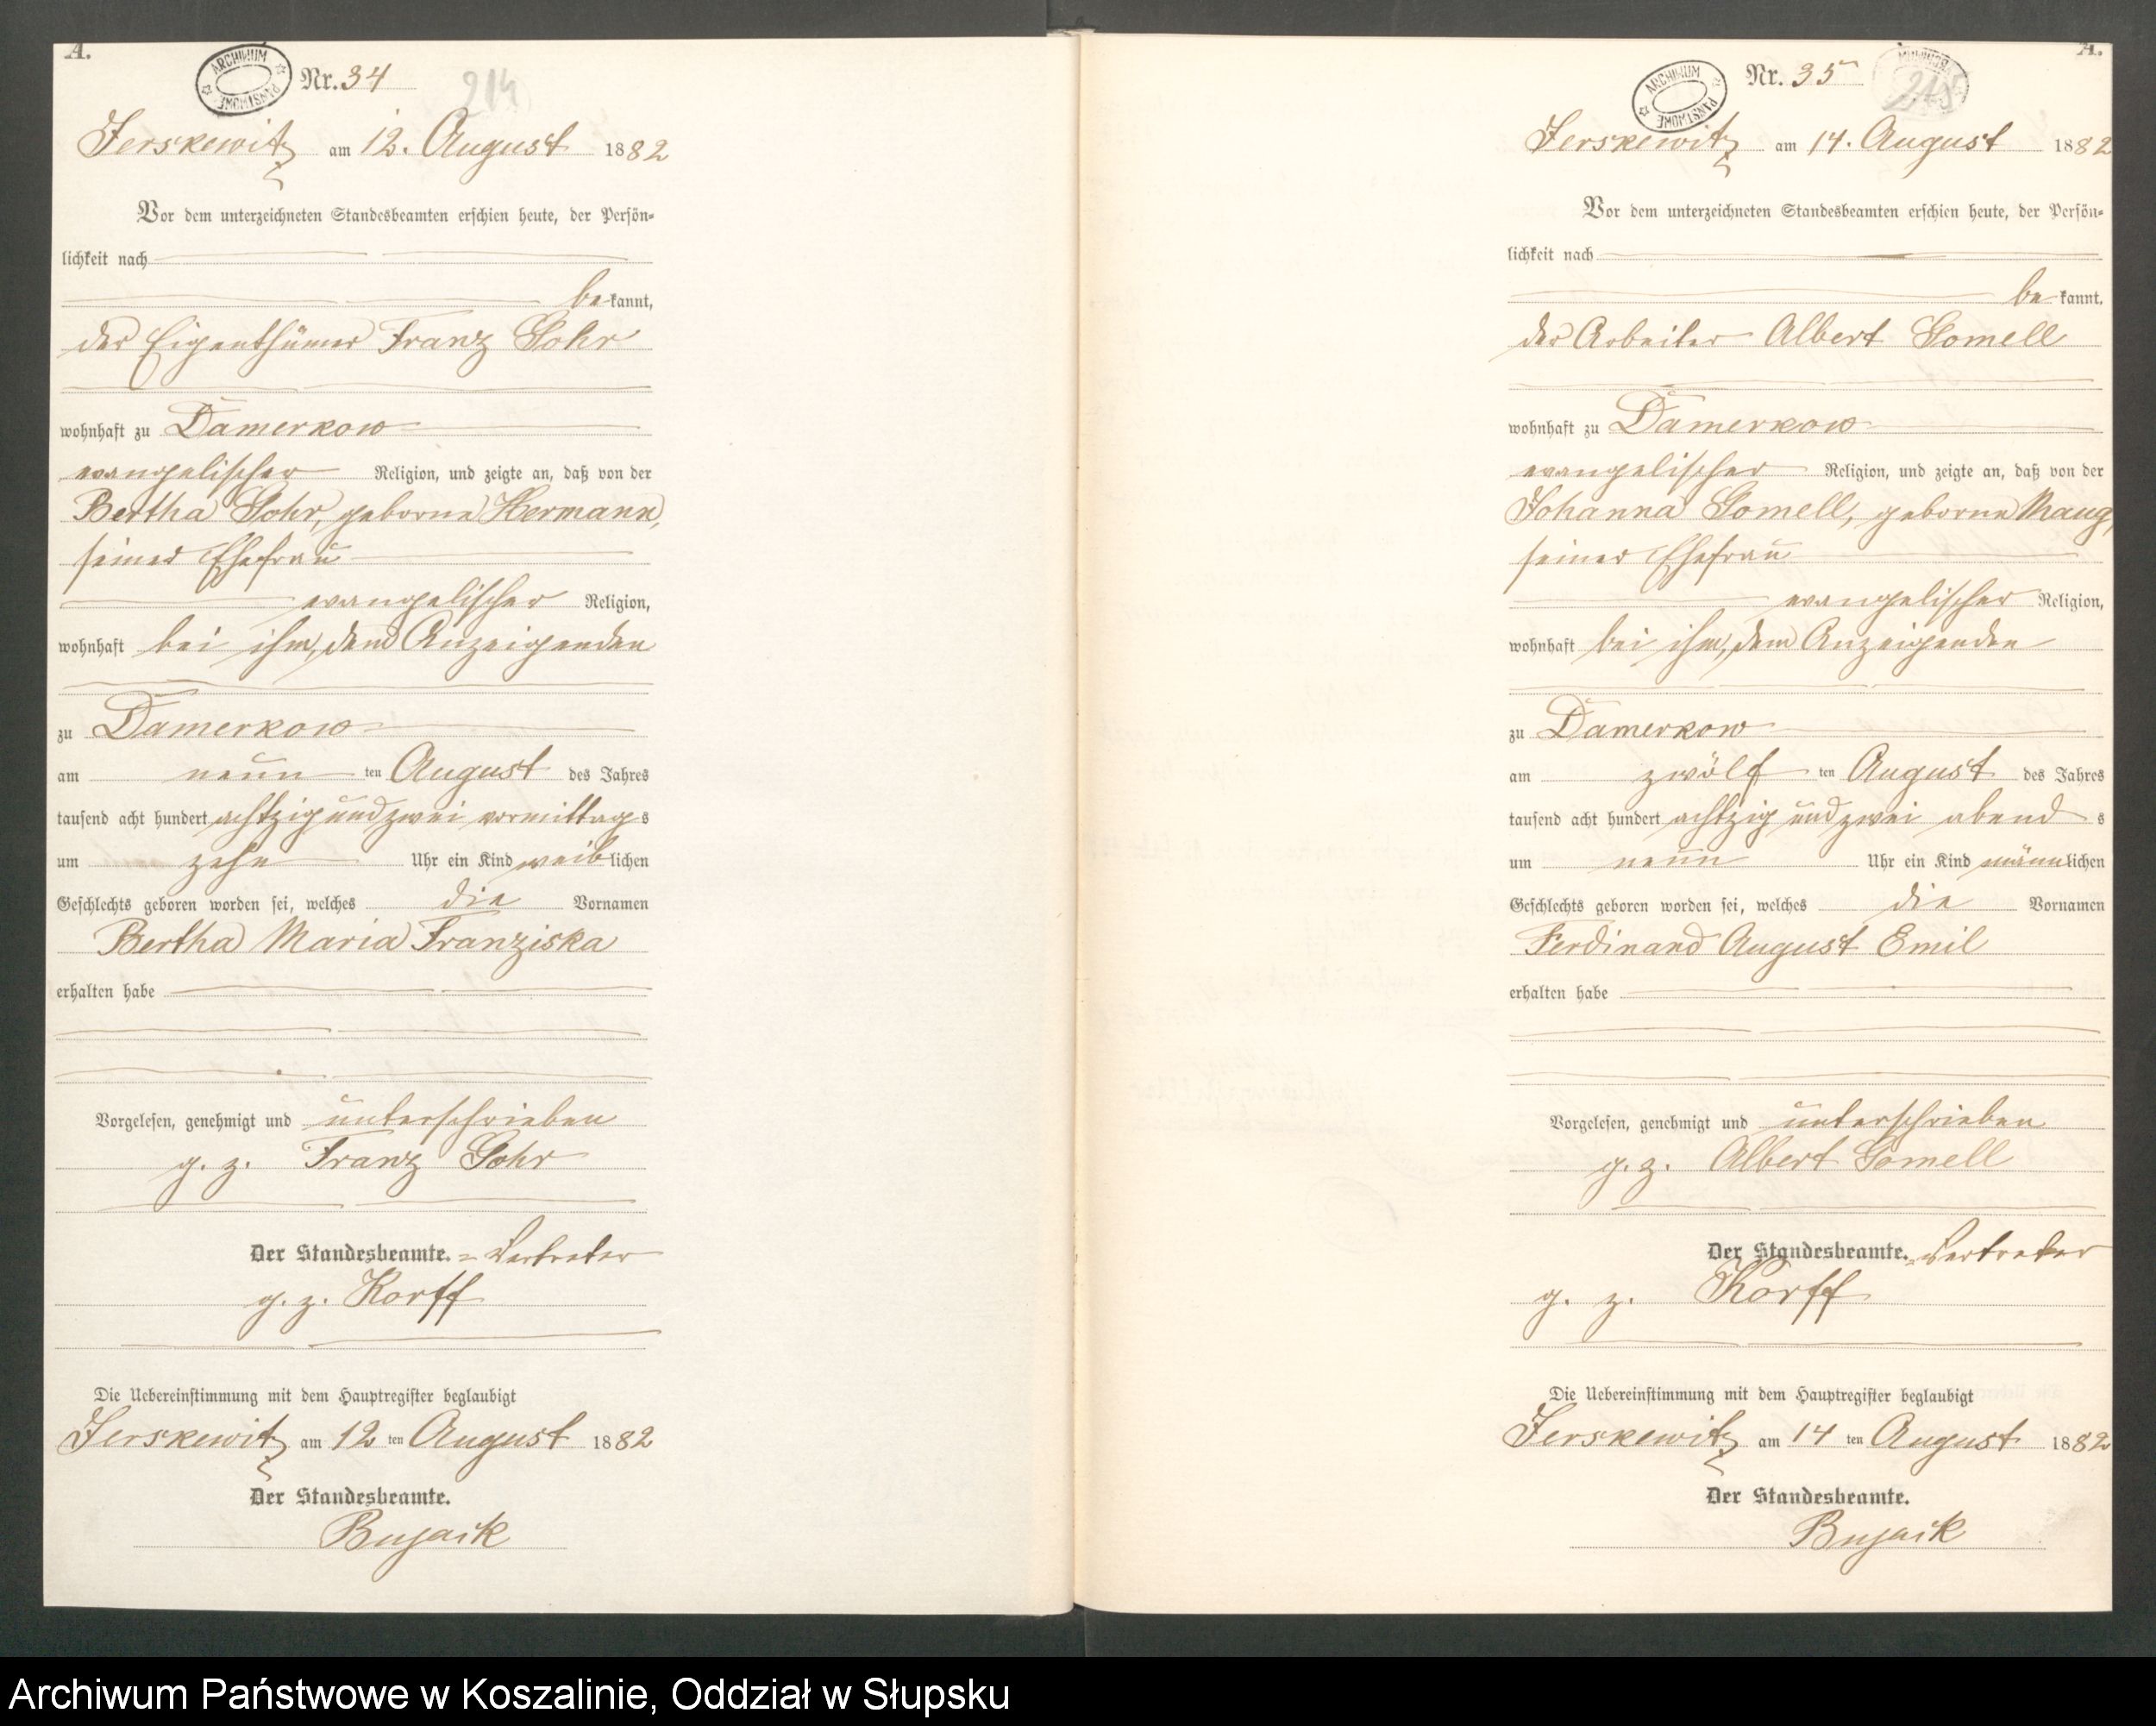 A.
ARCHIWUM PAŃSTWOWE
Nr. 34
214
Jerskewitz am 12. August 1882
Vor dem unterzeichneten Standesbeamten erschien heute, der Persön-
lichkeit nach
be kannt,
der Eigenthümer Franz Gohr
wohnhaft zu Damerkow
evangelischer Religion, und zeigte an, daß von der
Bertha Gohr, geborne Hermann,
seiner Ehefrau
evangelischer Religion,
wohnhaft bei ihm, dem Anzeigenden
zu Damerkow
am neun ten August des Jahres
tausend acht hundert achtzig und zwei vormittag s
um zehn Uhr ein Kind weiblichen
Geschlechts geboren worden sei, welches die Vornamen
Bertha Maria Franziska
erhalten habe
Vorgelesen, genehmigt und unterschrieben
g. z. Franz Gohr
Der Standesbeamte. = Vertreter
g. z. Korff
Die Uebereinstimmung mit dem Hauptregister beglaubigt
Jerskewitz am 12 ten August 1882
Der Standesbeamte.
Bujack
A.
ARCHIWUM PAŃSTWOWE
Nr. 35
215
Jerskewitz am 14. August 1882
Vor dem unterzeichneten Standesbeamten erschien heute, der Persön-
lichkeit nach
be kannt,
der Arbeiter Albert Gomell
wohnhaft zu Damerkow
evangelischer Religion, und zeigte an, daß von der
Johanna Gomell, geborne Maug,
seiner Ehefrau
evangelischer Religion,
wohnhaft bei ihm, dem Anzeigenden
zu Damerkow
am zwölf ten August des Jahres
tausend acht hundert achtzig und zwei abend s
um neun Uhr ein Kind männlichen
Geschlechts geboren worden sei, welches die Vornamen
Ferdinand August Emil
erhalten habe
Vorgelesen, genehmigt und unterschrieben
g. z. Albert Gomell
Der Standesbeamte. = Vertreter
g. z. Korff
Die Uebereinstimmung mit dem Hauptregister beglaubigt
Jerskewitz am 14 ten August 1882
Der Standesbeamte.
Bujack
Archiwum Państwowe w Koszalinie, Oddział w Słupsku